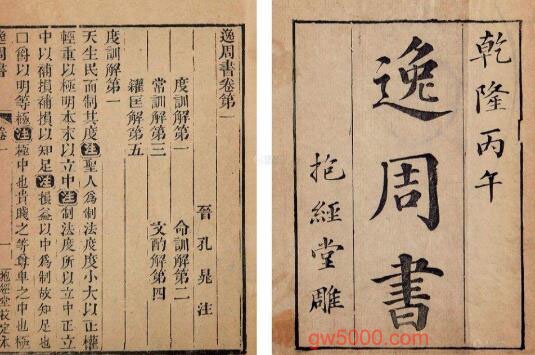 乾隆丙午
逸周書
抱經堂雕
gw5000.com
逸周書卷第一
晉孔晁注
度訓解第一 命訓解第二
常訓解第三 文酌解第四
糴匡解第五
度訓解第一
天生民而制其度注聖人爲制法度度小大以正權
輕重以極明本末以立中注制法度所以立中正立
中以補損補損以知足注損益以中爲制故知足也
口爵以明等極注極中也貴賤之等尊卑之中也極
逸周書 卷一 一 抱經堂校定本